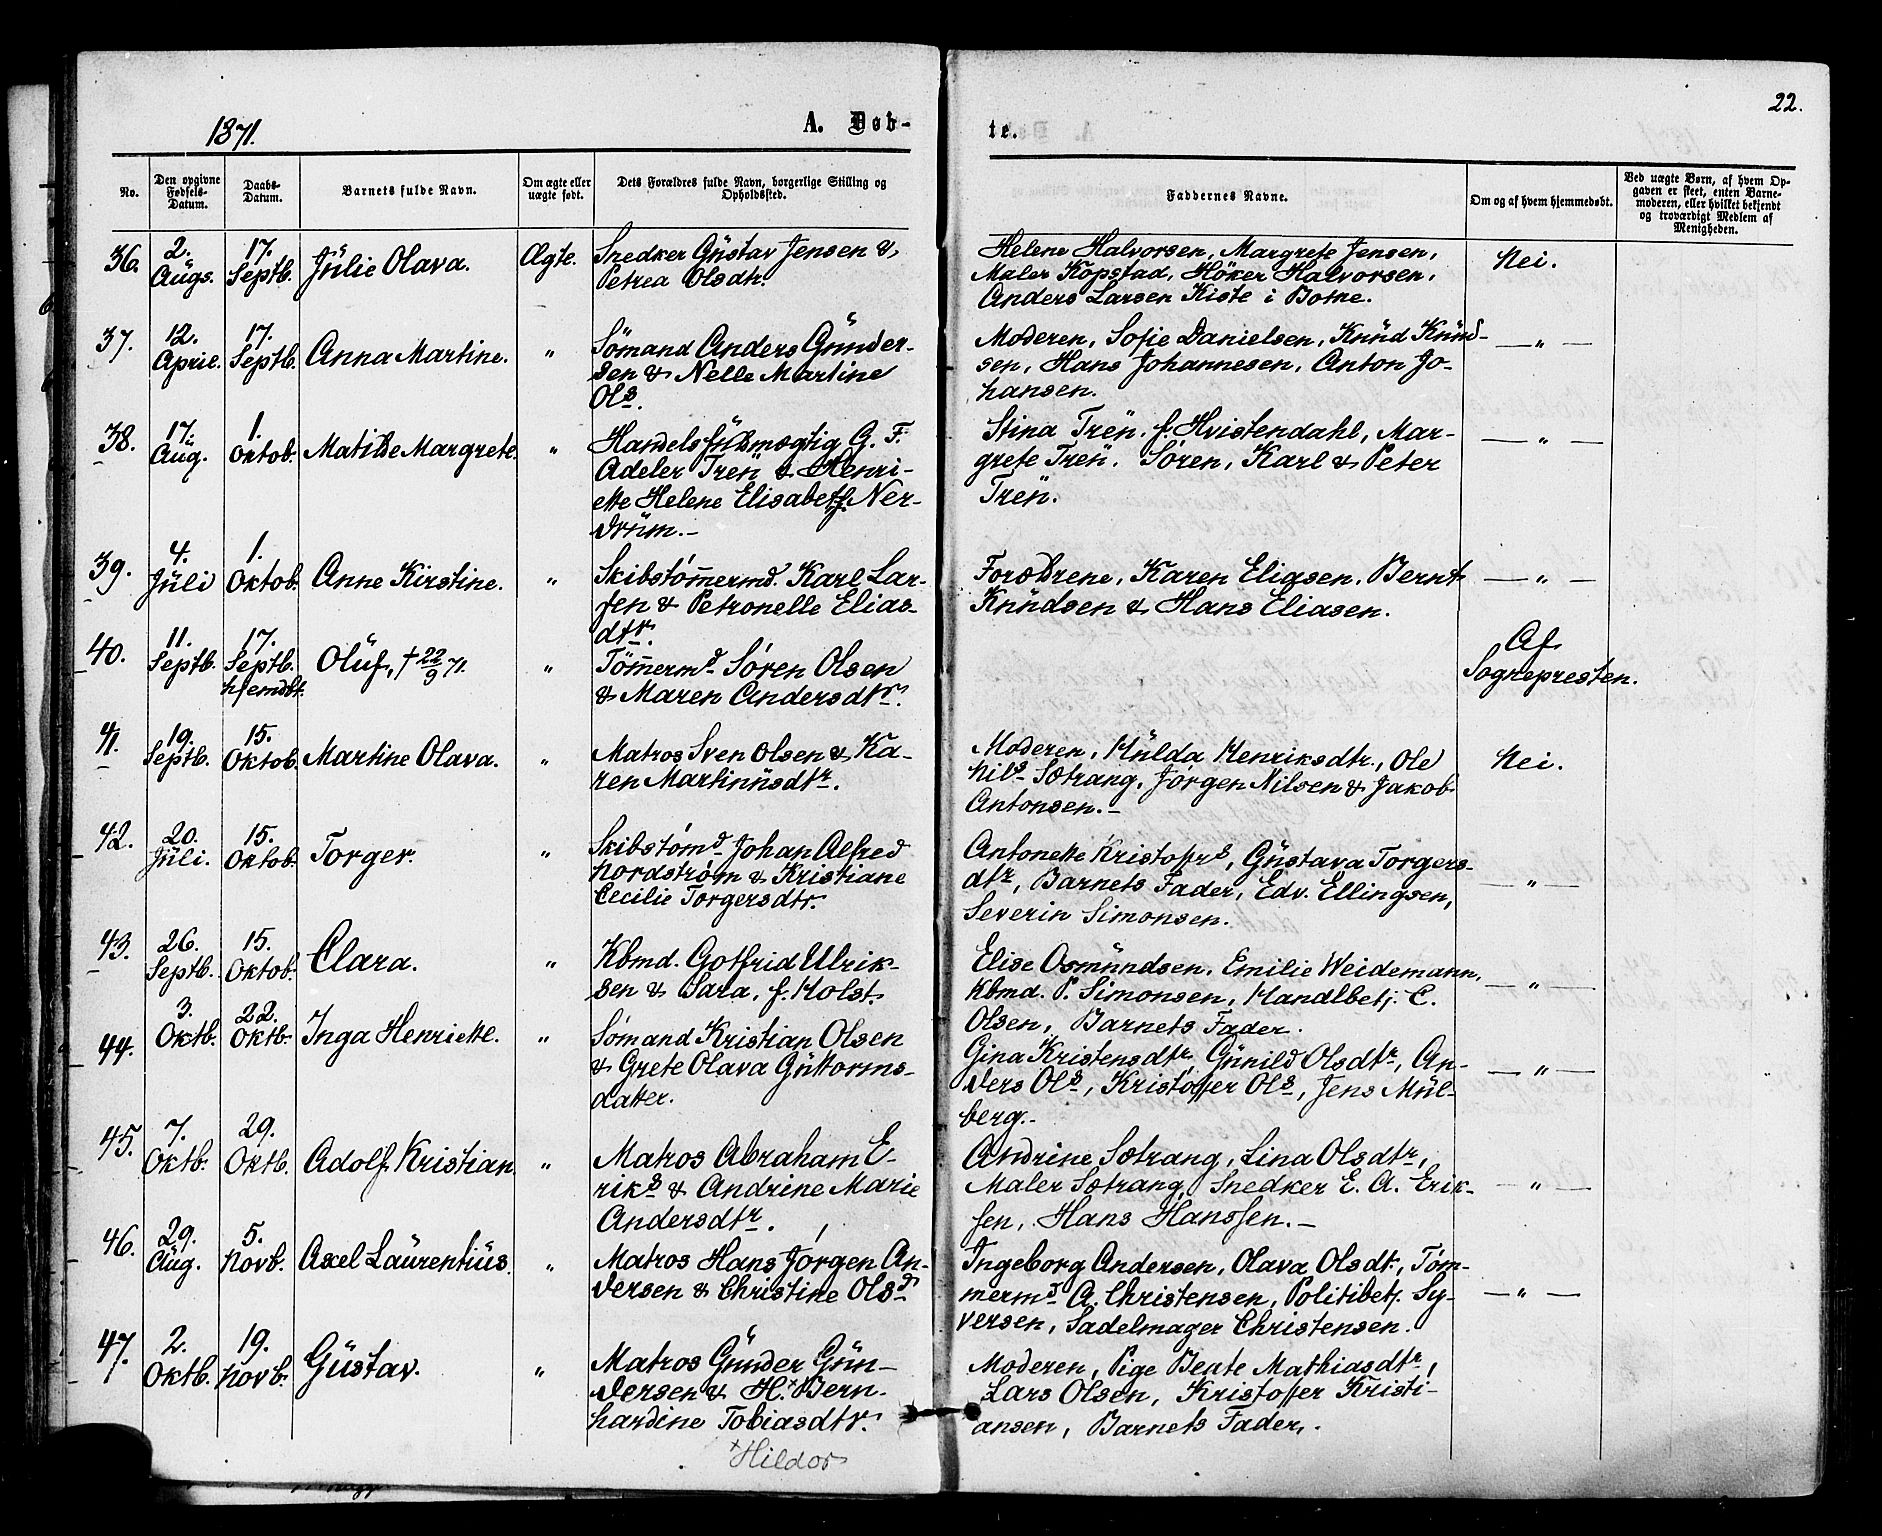 22.
1871.
A. Døb-
te.
No.
Den opgivne Fødsels-Datum.
Daabs-Datum.
Barnets fulde Navn.
Om ægte eller uægte født.
Dets Forældres fulde Navn, borgerlige Stilling og Opholdssted.
Faddernes Navne.
Om og af hvem hjemmedøbt.
Ved uægte Børn, af hvem Op-
gaven er skeet, enten Barne-
moderen, eller hvilket bekjendt
og troværdigt Medlem af
Menigheden.
36. 2. Augs. 17. Septb. Julie Olava. Ægte.
Snedker Gustav Jensen &
Petrea Olsdtr.
Helene Halvorsen, Margrete Jensen,
Maler Kopstad, Höker Halvorsen,
Anders Larsen Kiste i Botne.
Nei.
37. 12. April. 17. Septb. Anna Martine. "
Sömand Anders Gunder-
sen & Nelle Martine
Ols.
Moderen, Sofie Danielsen, Knud Knud-
sen, Hans Johannesen, Anton Jo-
hansen.
— " —
38. 17. Aug. 1. Oktob. Matilde Margrete. "
Handelsfuldmægtig G. F.
Adeler Treu & Henri-
ette Helene Elisabeth Ner-
drum.-
Stina Treu. f. Hvistendahl, Mar-
grete Treu. Søren, Karl & Peter
Treu.
— " —
39. 4. Juli 1. Oktob. Anne Kirstine. "
Skibstømermd. Karl Lar-
sen & Petronelle Elias-
dtr.
Forældrene, Karen Eliasen, Bernt
Knudsen & Hans Eliasen.
— " —
40. 11. Septb. 17. Septb. hjemdbt. Oluf, † 22/9 71. "
Tömermd Søren Olsen
& Maren Andersdtr.
Af
Sognepresten.
41. 19. Septb. 15. Oktob. Martine Olava. "
Matros Sven Olsen & Ka-
ren Martinusdtr.
Moderen, Hulda Henriksdtr., Ole
Nils. Sætrang, Jørgen Nilsen & Jakob
Antonsen.-
Nei.
42. 20. Juli. 15. Oktob. Torger. "
Skibstømd Johan Alfred
Nordstrøm & Kristiane
Cecilie Torgersdtr.
Antonette Kristoffrs, Gustava Torgers-
dtr, Barnets Fader, Edv. Ellingsen,
Severin Simonsen.
— " —
43. 26. Septb. 15. Oktob. Clara. "
Kbmd. Gotfrid Ulrik-
sen & Sara, f. Holst.
Elise Osmundsen, Emilie Weidemann,
Kbmd. P. Simonsen, Handlbetj. C.
Olsen, Barnets Fader.
— " —
44. 3. Oktb. 22. Oktb. Inga Henriette. "
Sömand Kristian Olsen
& Grete Olava Guttorms-
datter.
Gina Kristensdtr, Gunild Olsdtr, An-
ders Ols, Kristoffer Ols, Jens Mül-
berg.-
— " —
45. 7. Oktb. 29. Oktb. Adolf Kristian. "
Matros Abraham E-
riks & Andrine Marie
Andersdtr.
Andrine Sætrang, Lina Olsdtr,
Maler Sætrang, Snedker E. A. Erik-
sen, Hans Hanssen.-
— " —
46. 29. Aug. 5. Novb. Axel Laurentius. "
Matros Hans Jørgen An-
dersen & Christine Olsd
Ingeborg Andersen, Olava Olsdt., Tøm-
mermd A. Christensen, Politibetj. Sy-
versen, Sadelmager Christensen.
— " —
47. 2. Oktb. 19. Novb. Gustav. "
Matros Gunder Gun-
dersen & H.× Bern-
hardine Tobiasdtr.
× Hildor
Moderen, Pige Beate Mathiasdtr,
Lars Olsen, Kristoffer Kristi-
ansen, Barnets Fader.